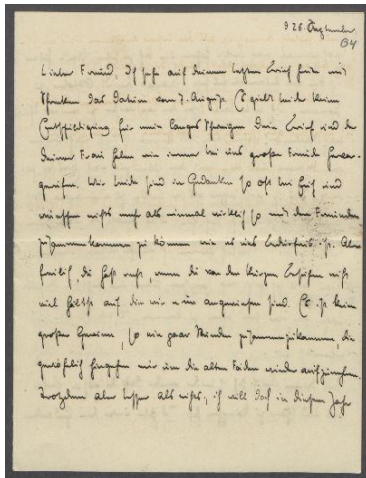 926. September
64
Lieber Freund, Ich sehe auf deinem letzten Brief heute mit
Schrecken das Datum vom 7. August. Es giebt leider keine
Entschuldigung für mein langes Schweigen. Dein Brief und der
deiner Frau haben wie immer bei uns große Freude hervor-
gerufen. Wir beide sind in Gedanken so oft bei Euch und
wünschen nichts mehr als einmal wirklich so mit den Freunden
zusammenkommen zu können wie es uns Bedürfnis ist. Aber
freilich, du hast recht, wenn du von den kurzen Besuchen nicht
viel hältst auf die wir nun angewiesen sind. Es ist kein
großer Gewinn, so ein paar Stunden zusammenzukommen, die
gewöhnlich hingehen nur um die alten Fäden wieder aufzunehmen.
Trotzdem aber besser als nichts, ich will doch in diesem Jahr